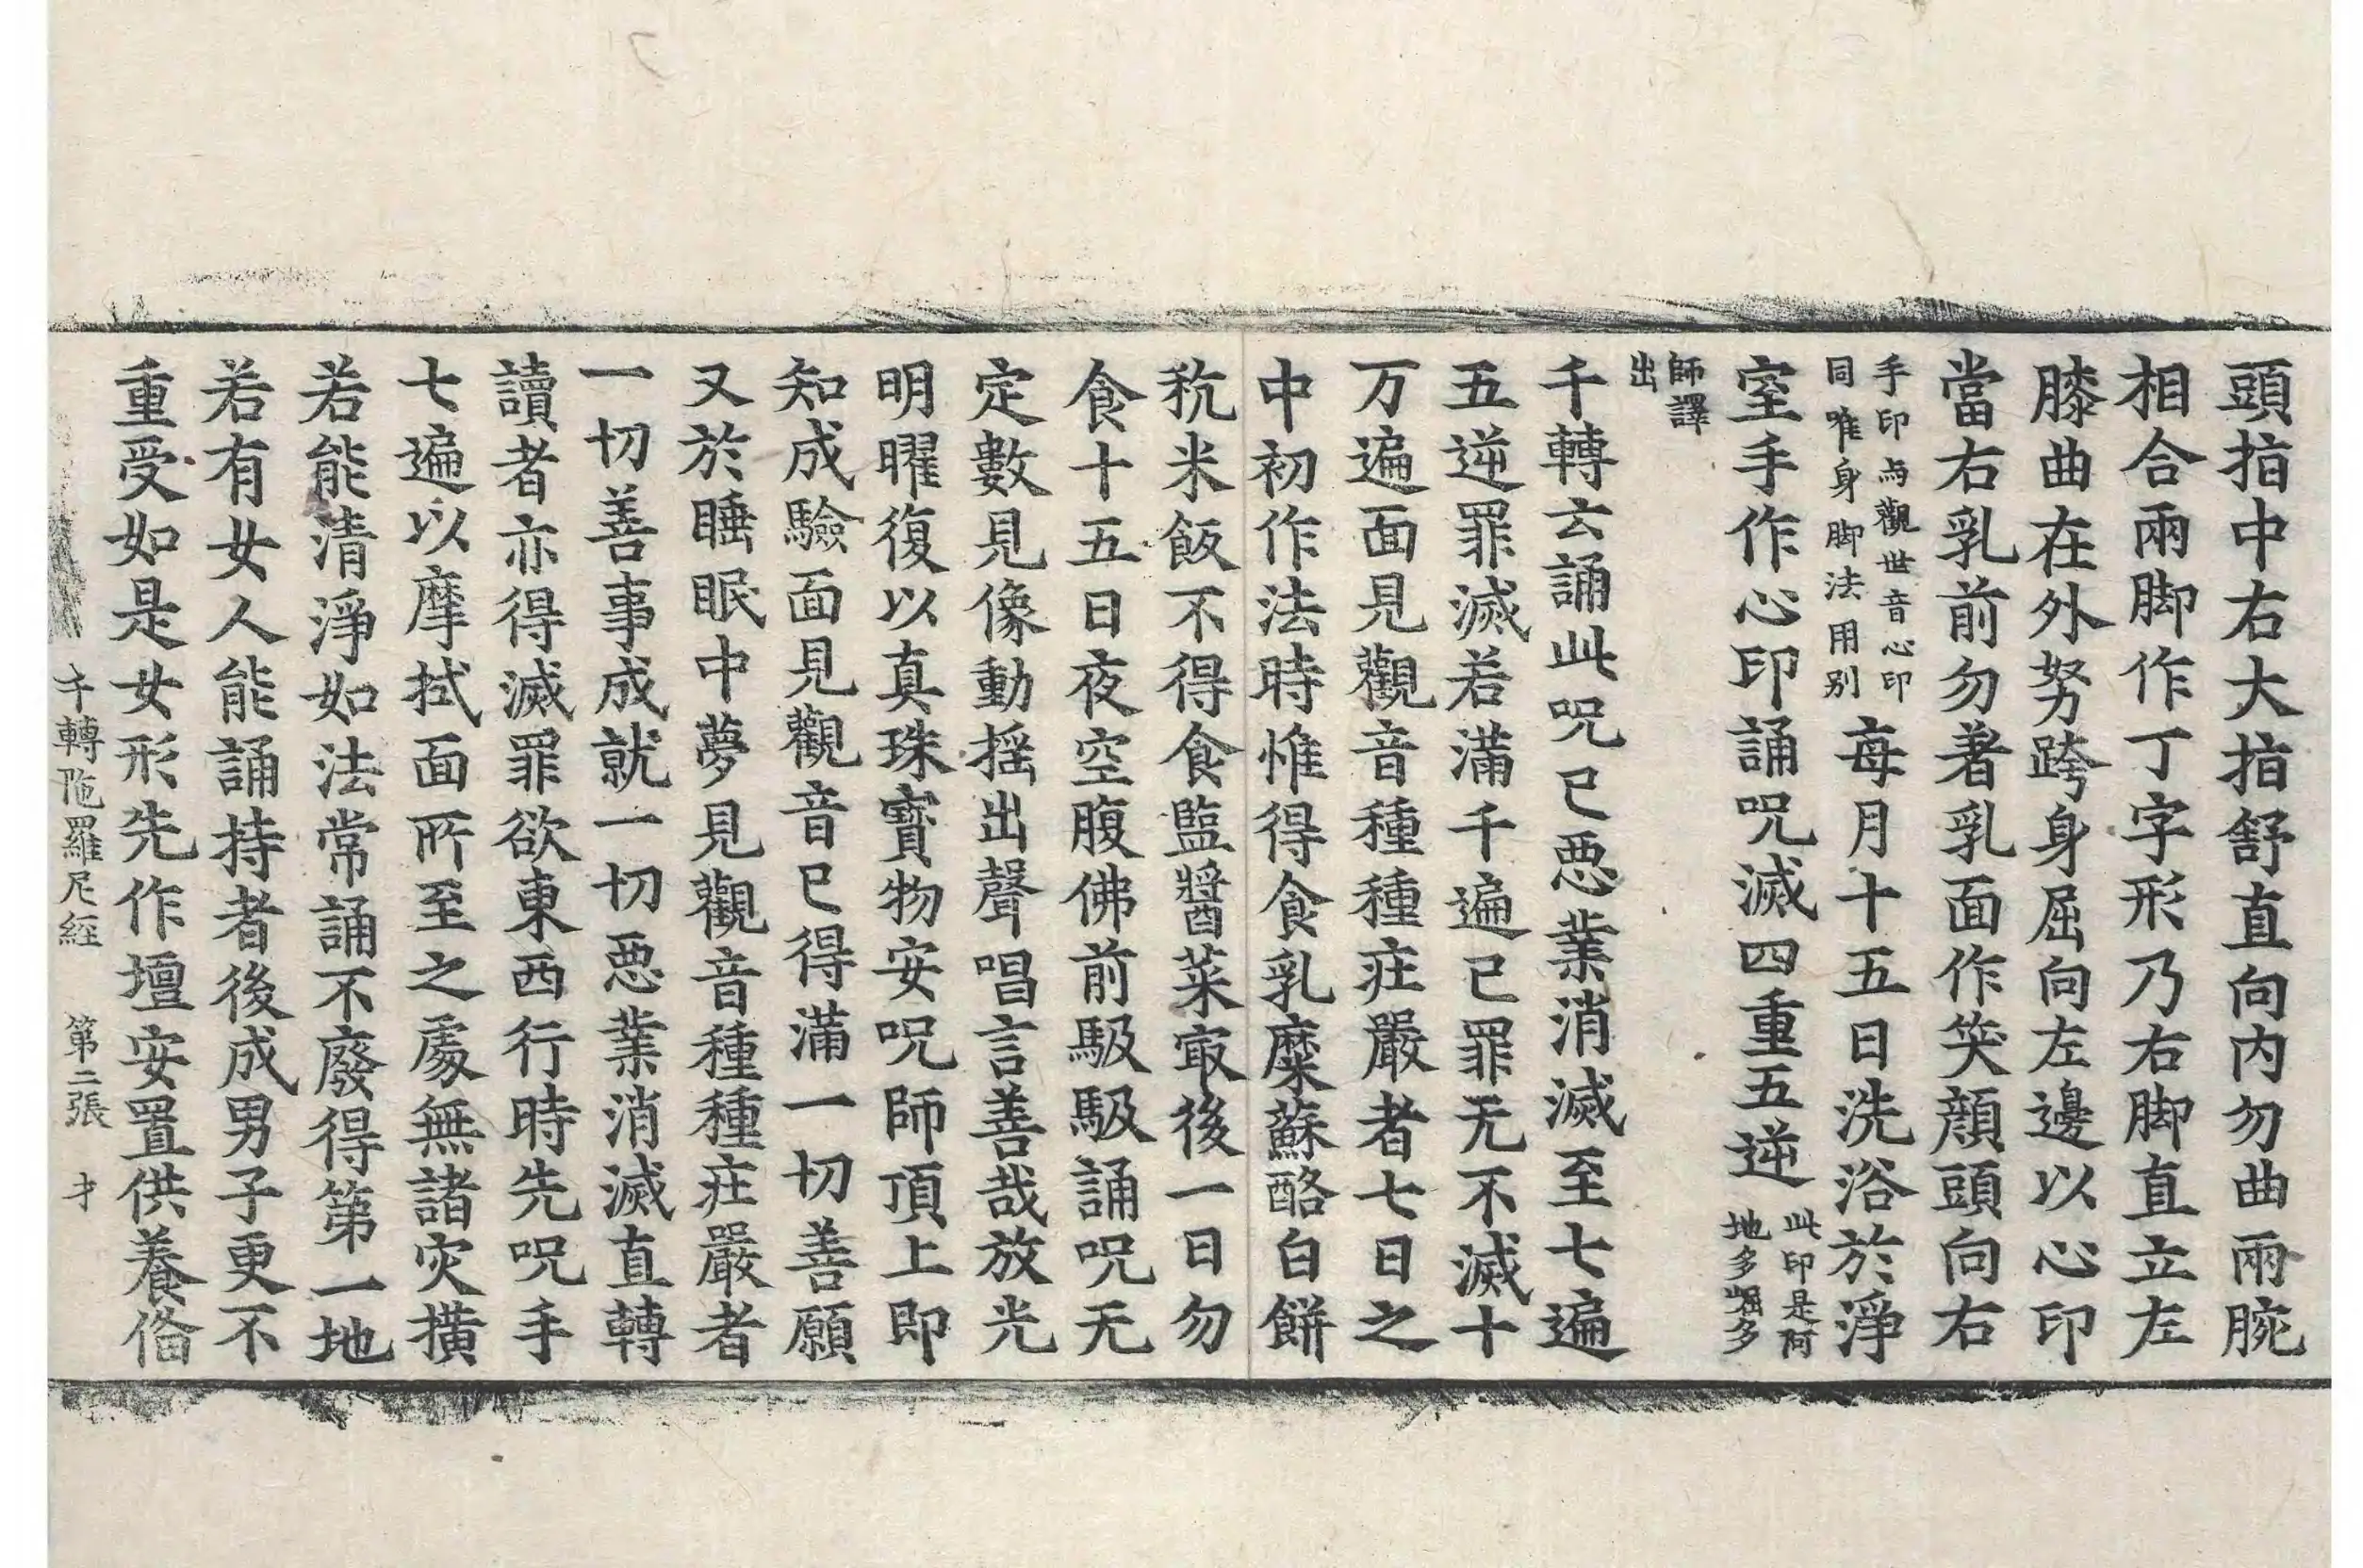 頭指中右大指舒直向内勿曲兩腕
相合兩脚作丁字形乃右脚直立左
膝曲在外努跨身屈向左邊以心印
當右乳前勿著乳面作笑顔頭向右
手印与觀世音心印
同唯身脚法用別
每月十五日洗浴於淨
室手作心印誦呪滅四重五逆
此印是阿
地多崛多
師譯
出
千轉云誦此呪已惡業消滅至七遍
五逆罪滅若滿千遍已罪无不滅十
万遍面見觀音種種莊嚴者七日之
中初作法時惟得食乳糜蘇酪白餅
秔米飯不得食監醬菜㝡後一日勿
食十五日夜空腹佛前馺馺誦呪无
定數見像動揺出聲唱言善哉放光
明曜復以真珠寳物安呪師頂上即
知成驗面見觀音已得滿一切善願
又於睡眠中夢見觀音種種莊嚴者
一切善事成就一切惡業消滅直轉
讀者亦得滅罪欲東西行時先呪手
七遍以摩拭面所至之處無諸灾撗
若能清淨如法常誦不廢得第一地
若有女人能誦持者後成男子更不
重受如是女形先作壇安置供養俻
千轉陁羅尼經 第二張 才